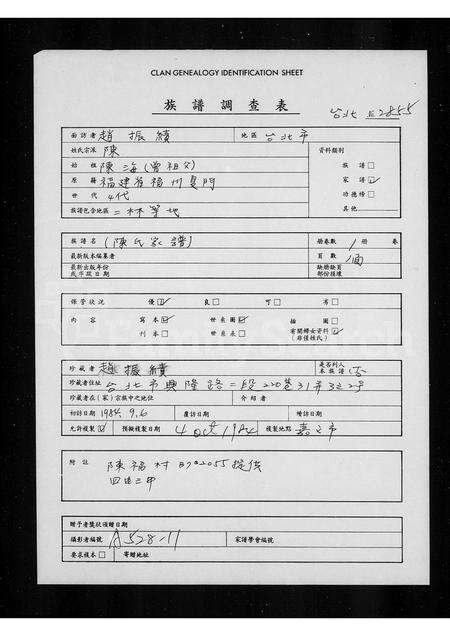 CLAN GENEALOGY IDENTIFICATION SHEET
族譜調查表
台北 2855
面訪者 趙振績 地區 台北市
姓氏宗派 陳 資料類別
始祖 陳海(曾祖父) 族譜□
原籍 福建省福州廈門 家譜☑
世代 4代 功德榜□
族譜包含地區 二林等地 其他
族譜名 (陳氏家譜) 册卷數 1 册 卷
最新版本編纂者 頁數 1面
最新出版年份 缺册缺頁
或序跋日期 部份損壞
保管狀況 優☑ 良□ 可□ 劣□
內容 寫本☑ 世系圖☑ 插圖□
刊本□ 世系表□ 有關婦女資料☑
(非僅姓氏)
珍藏者 趙振績 是否列入本族譜 (否
珍藏者住址 台北市興隆路二段220巷31弄32號
珍藏者在(家)宗族中之地位 介紹者
初訪日期 1984.9.6 覆訪日期 增訪日期
允許複製☑ 預擬複製日期 4 Oct 1984 複製地點 嘉義市
附註 陳福村 提供
贈予者獎狀頒贈日期
攝影者編號 A528-11 家譜學會編號
要求複本□ 寄贈地址